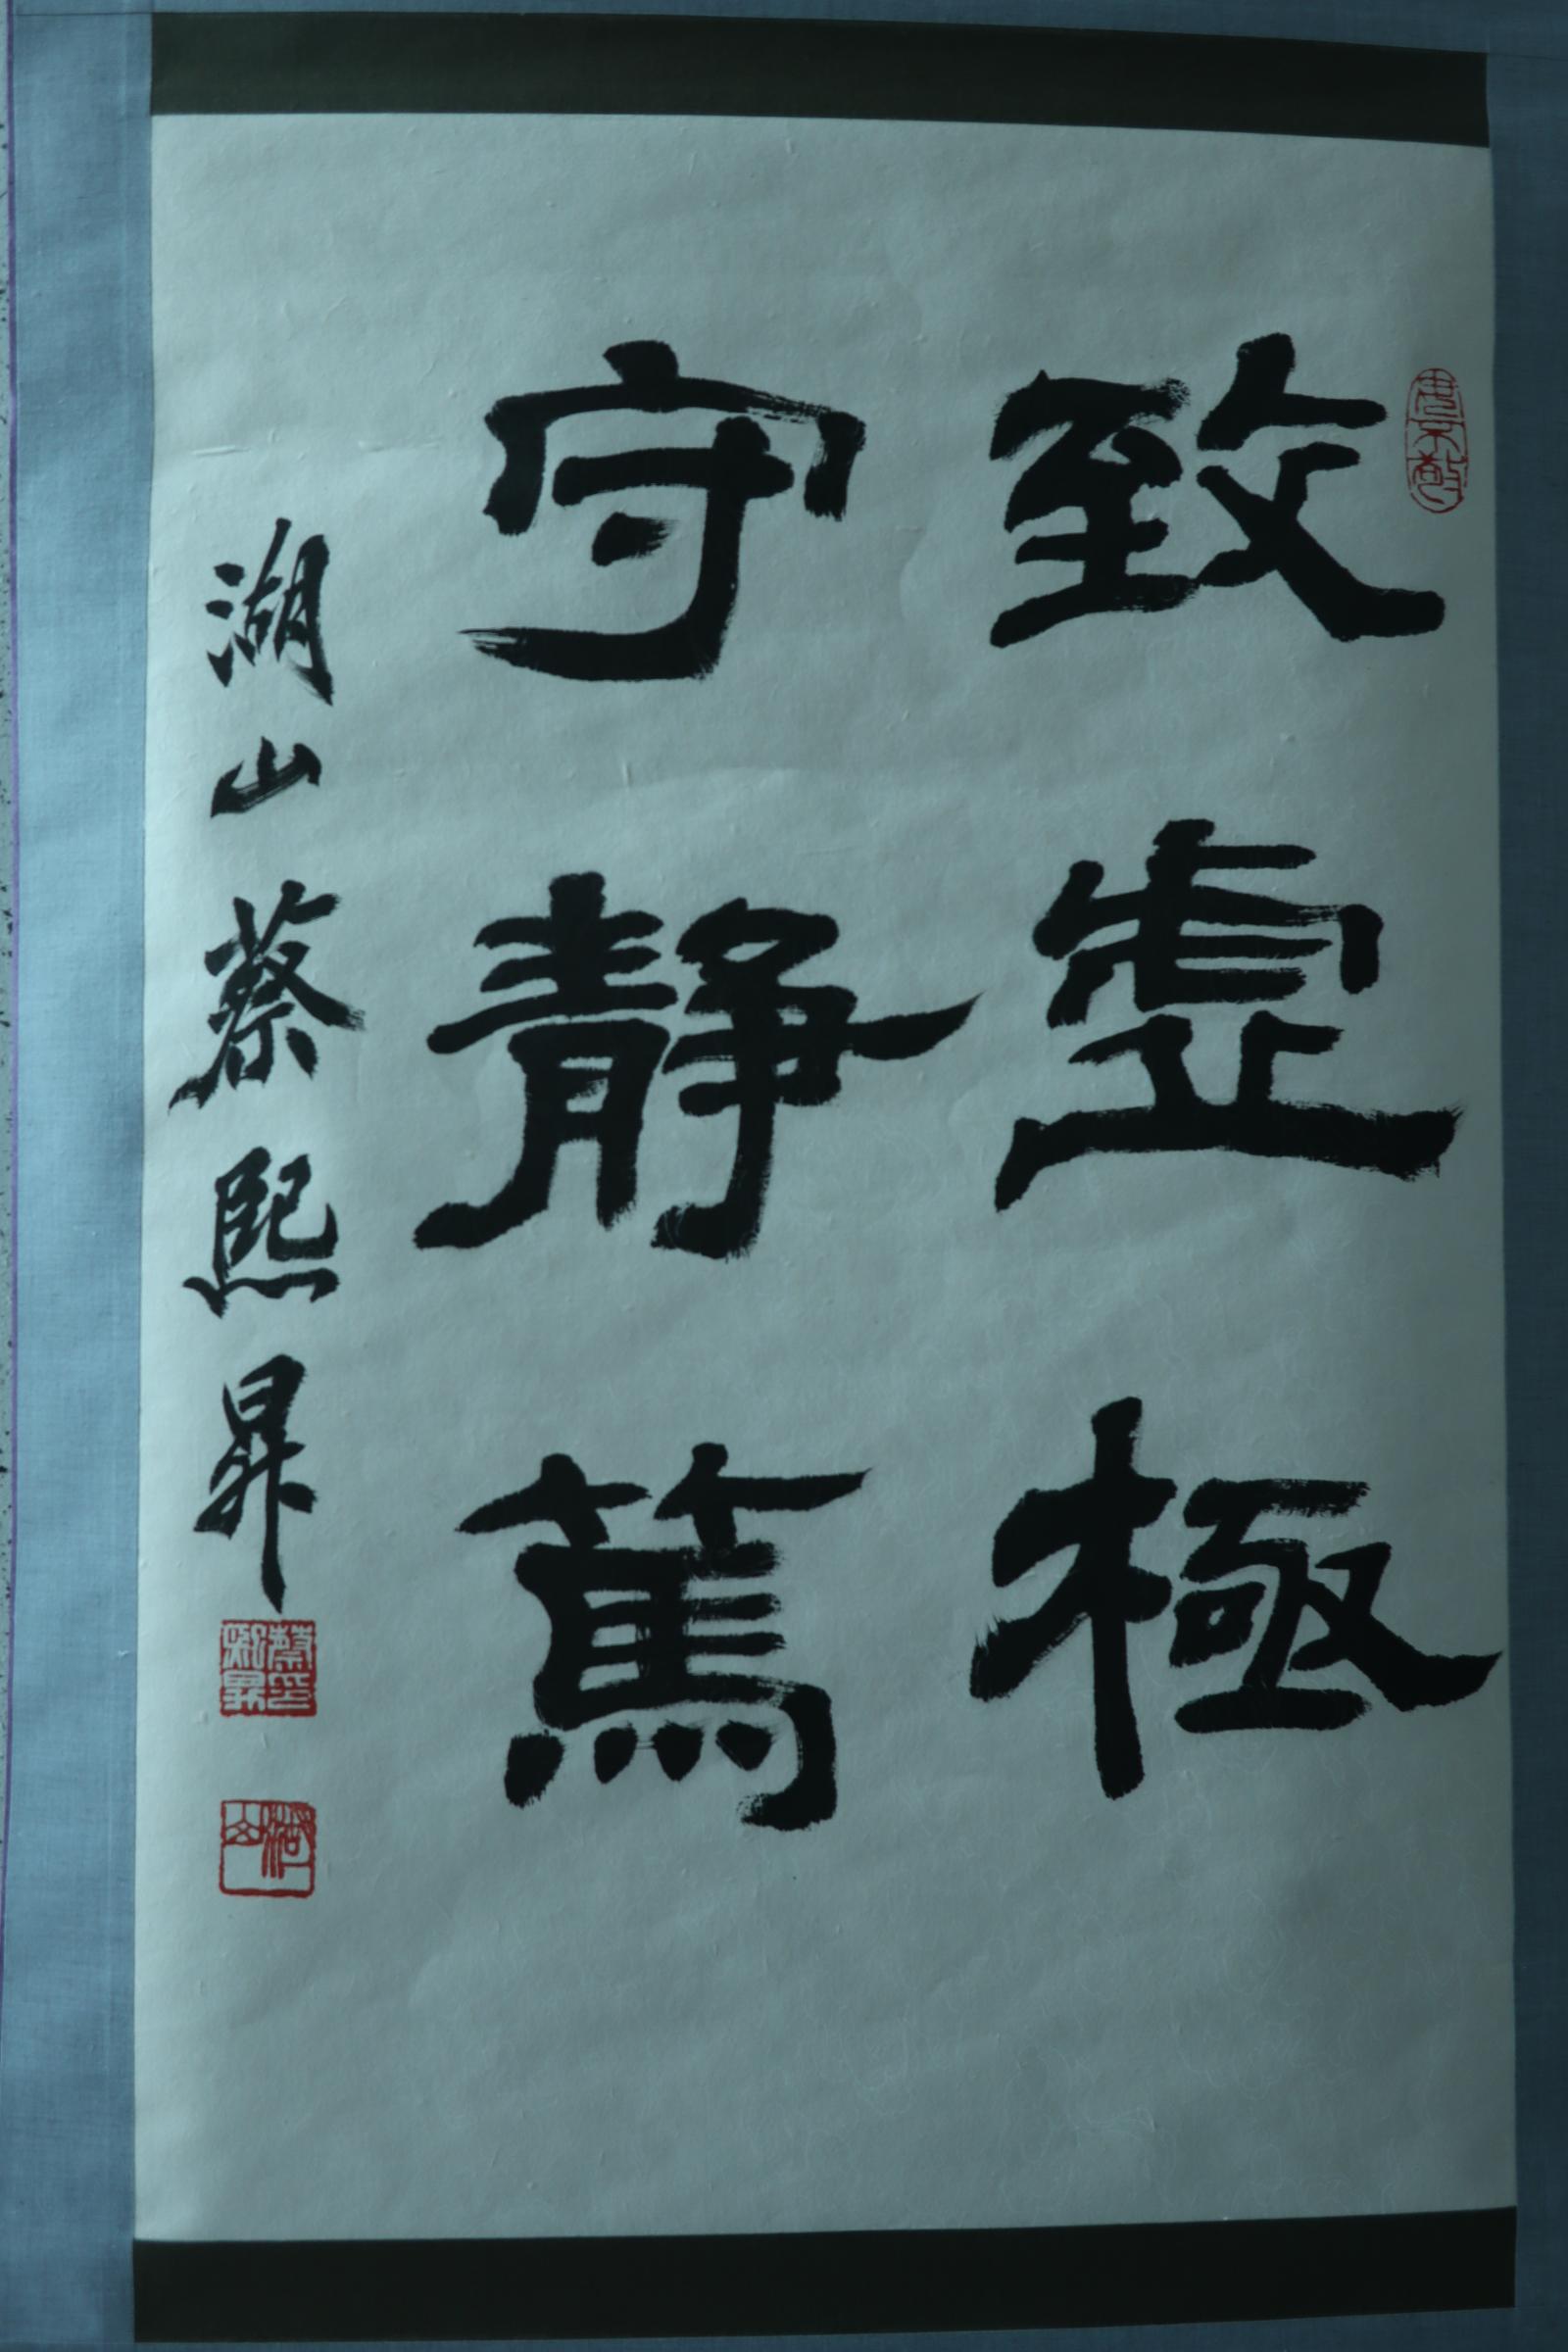 致虛極
守靜篤
湖山蔡熙昇
蔡熙昇印
湖山